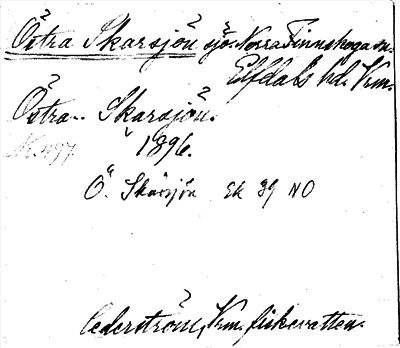 Östra Skarsjön sjö. Norra Finnskoga sn.
Elfdals hd. Vrm.
Östra.. Skarsjön.
N. 497. 1896.
Ö. Skärsjön Ek 89 NO
Cederström, Vrm. fiskevatten.